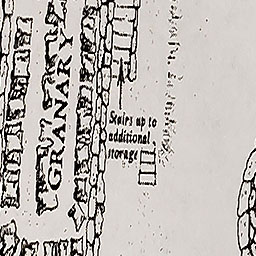 GRANARY
Stairs up to
additional
storage